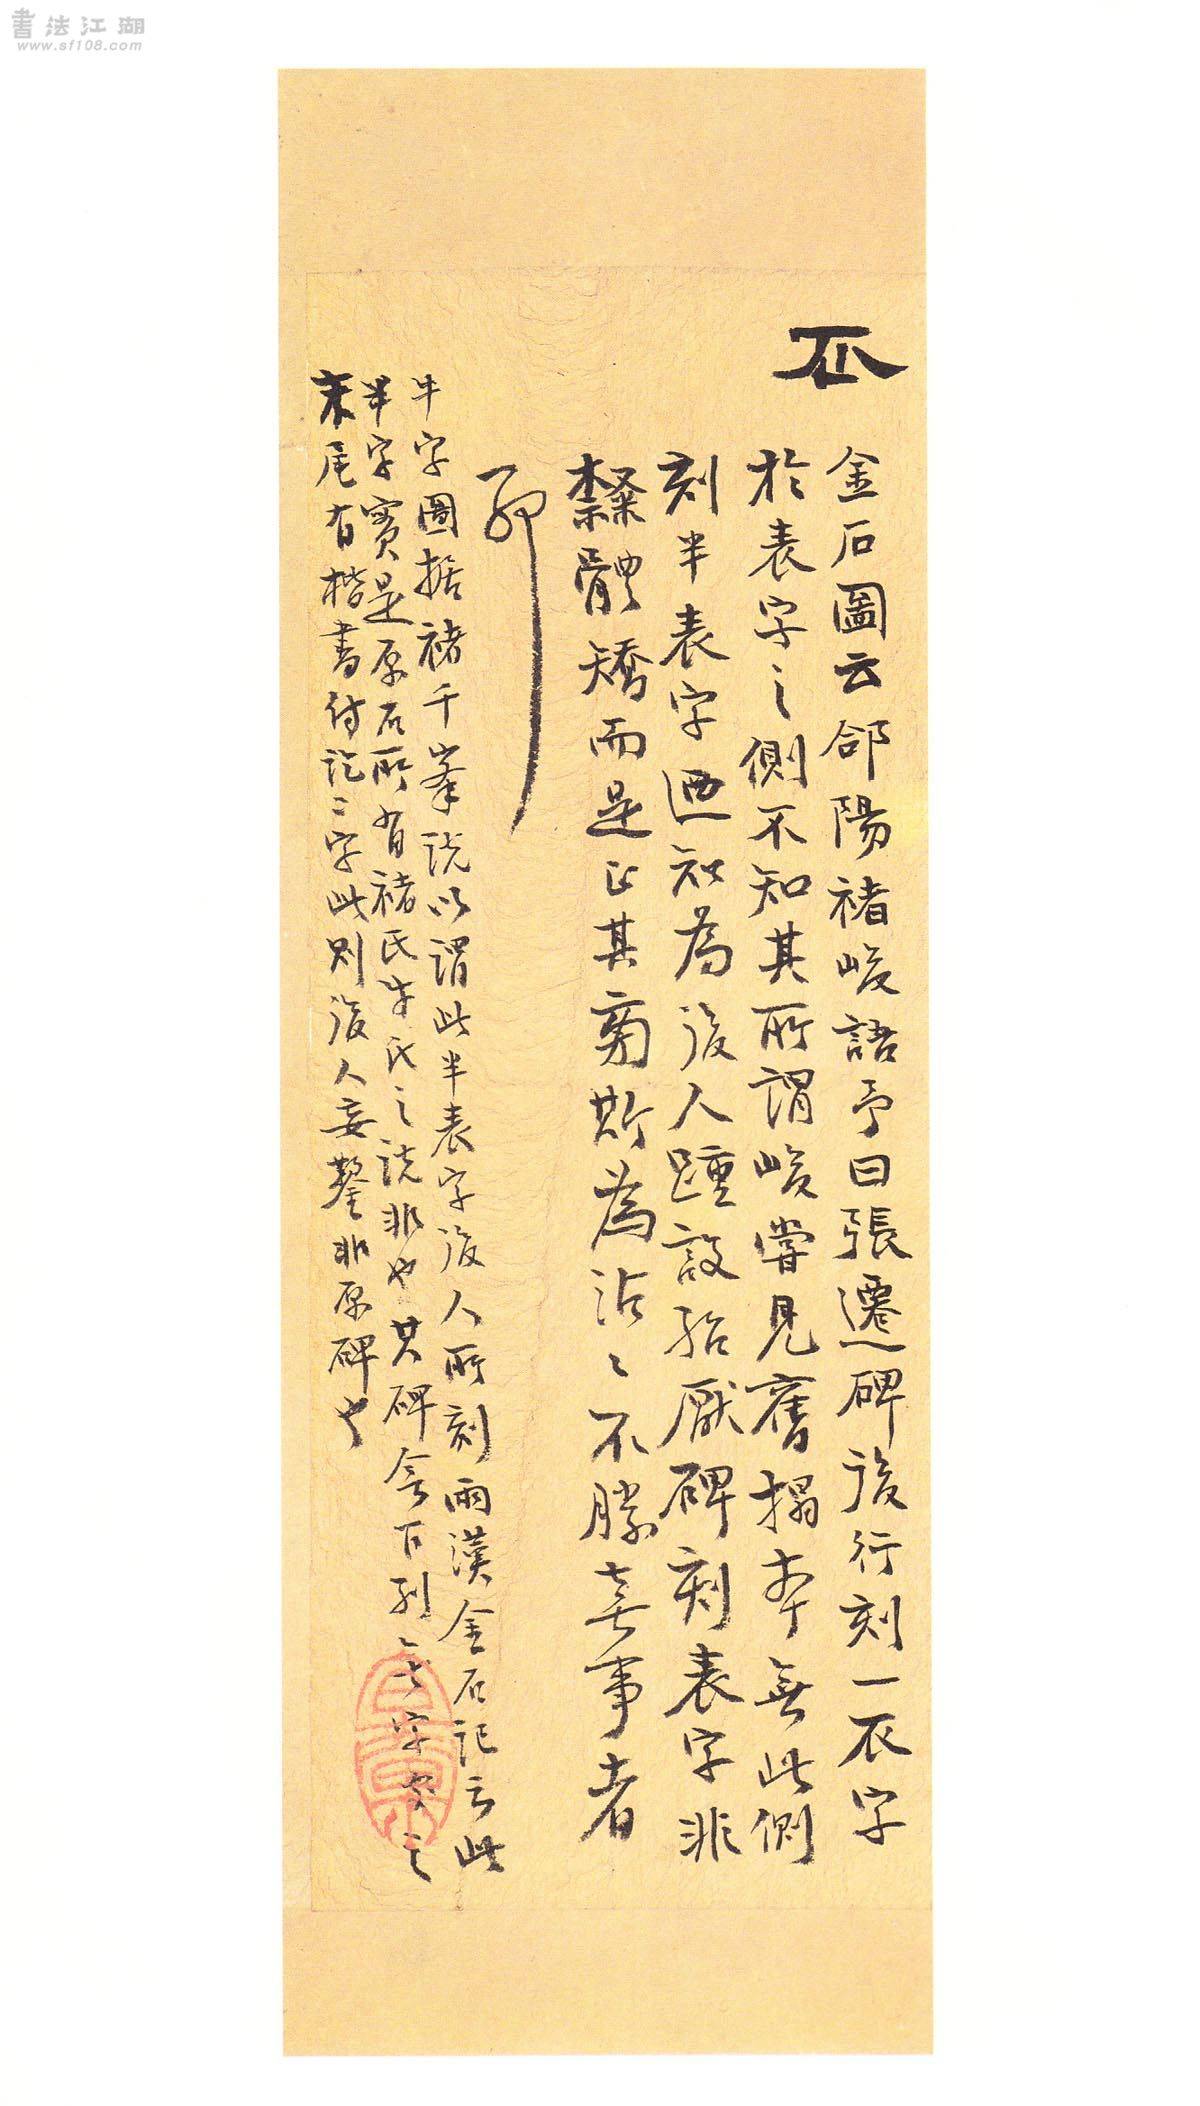 書法江湖
www.sf108.com
金石圖云郃陽褚峻語予曰張遷碑後行刻一衣字
於表字之側不知其所謂峻嘗見舊搨本無此側
刻半表字迺知為後人踵設殆厭碑刻表字非
隸體矯而是正其旁斯為沾沾不勝喜事者
耶
牛字圖據褚千峯說以謂此半表字後人所刻兩漢金石記云此
半字實是原石所有褚氏牛氏之說非也其碑
末尾有楷書付訖二字此則後人妄鑿非原碑也